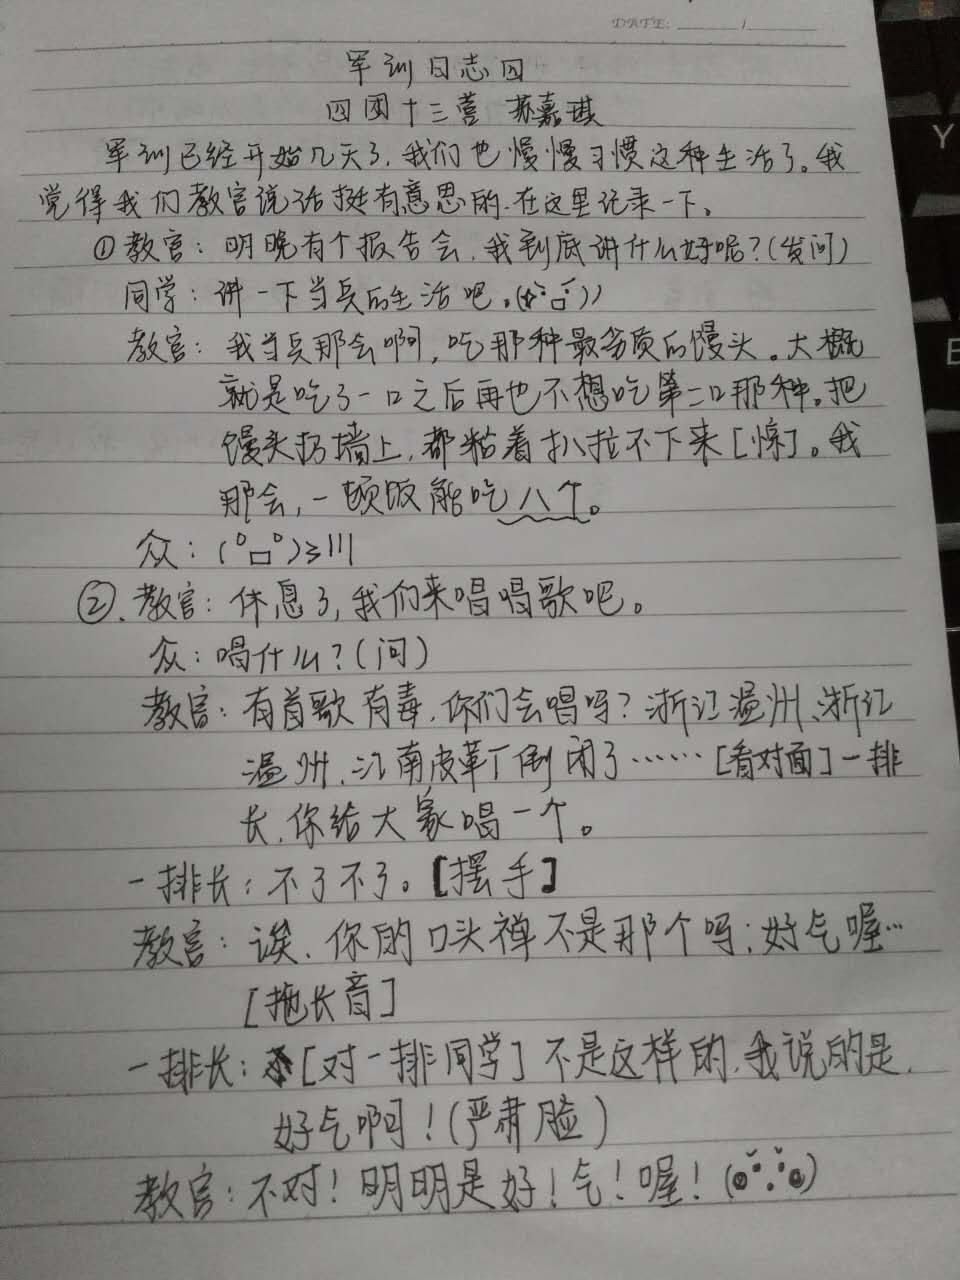 DATE: / 
军训日志四
四团十三营 苏嘉琪
军训已经开始几天了，我们也慢慢习惯这种生活了。我
觉得我们教官说话挺有意思的，在这里记录一下。
①教官：明晚有个报告会，我到底讲什么好呢？（发问）
同学：讲一下当兵的生活吧。
教官：我当兵那会啊，吃那种最劣质的馒头。大概
就是吃了一口之后再也不想吃第二口那种。把
馒头扔墙上，都粘着扒拉不下来[惊]。我
那会，一顿饭能吃八个。
众：(°口°)≥|||
②.教官：休息了，我们来唱唱歌吧。
众：唱什么？（问）
教官：有首歌有毒，你们会唱吗？浙江温州、浙江
温州，江南皮革厂倒闭了……[看对面]一排
长，你给大家唱一个。
一排长：不了不了。[摆手]
教官：诶，你的口头禅不是那个吗：好气喔…
[拖长音]
一排长：[对一排同学]不是这样的，我说的是，
好气啊！（严肃脸）
教官：不对！明明是好！气！喔！
Y
E